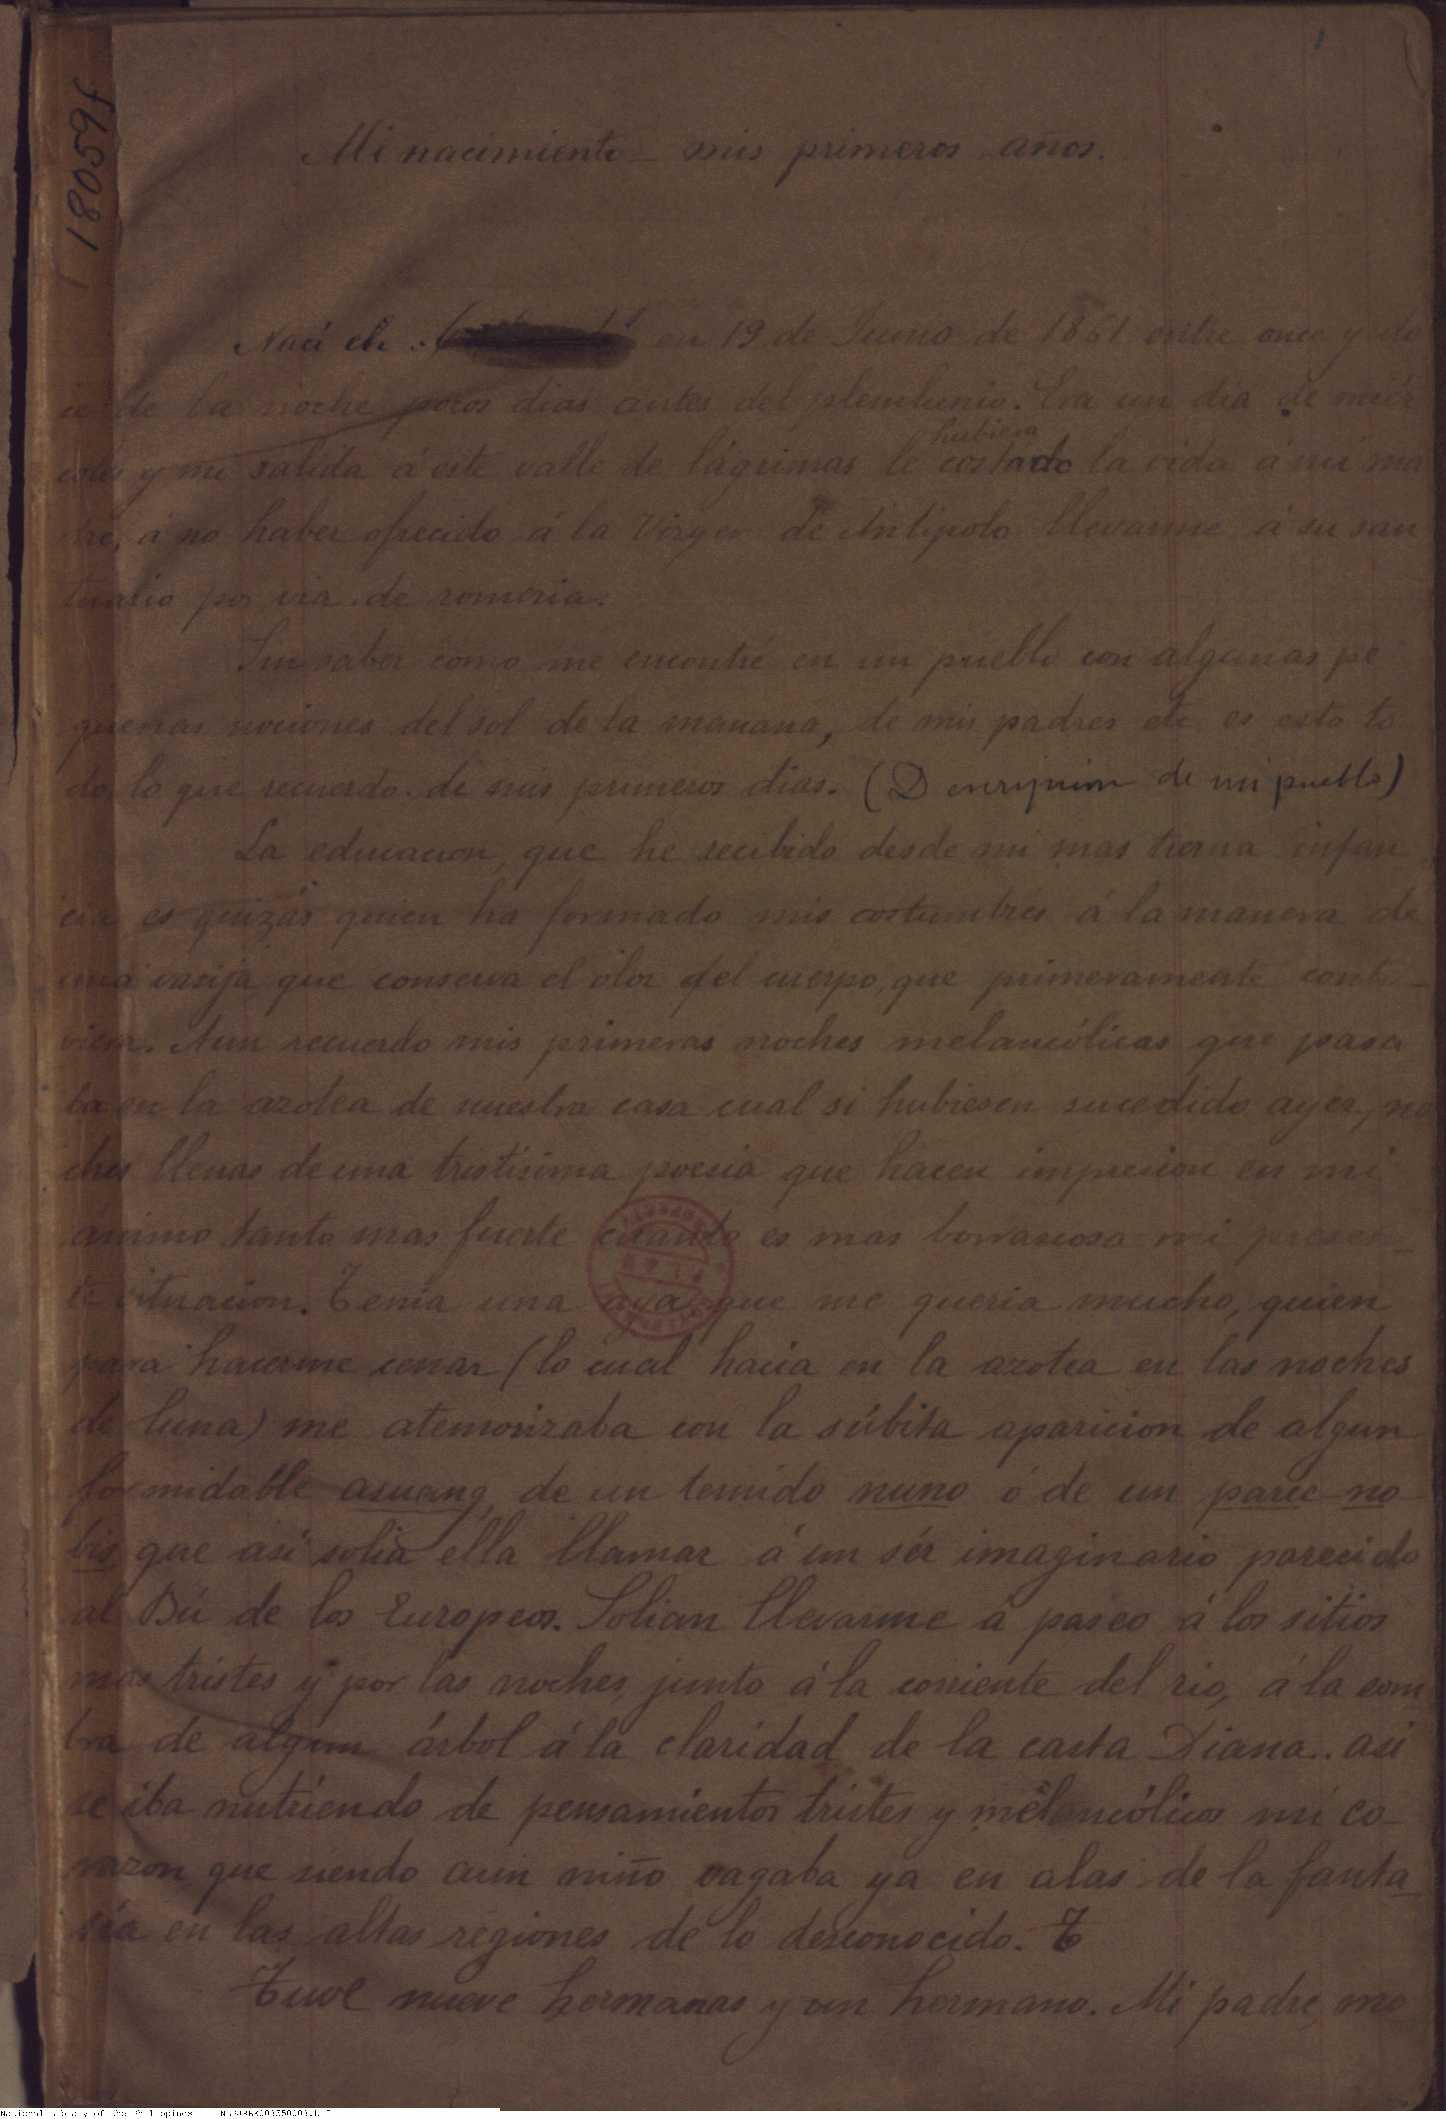 18059f
1
Mi nacimiento – mis primeros años.
Nací en en 19 de Junio de 1861 entre once y do
ce de la noche pocos dias antes del plenilunio. Era un dia de miér
coles y mi salida á este valle de lágrimas le hubiera costado la vida á mi ma
dre, á no haber ofrecido á la Virgen de Antipolo llevarme á su san
tuario por via de romeria.
Sin saber como me encontré en un pueblo con algunas pe
queñas nociones del sol de la mañana, de mis padres etc es esto to
do lo que recuerdo de mis primeros dias. (Descripcion de mi pueblo)
La educacion, que he recibido desde mi mas tierna infan
cia es quizás quien ha formado mis costumbres á la manera de
una vasija que conserva el olor del cuerpo, que primeramente contu-
viera. Aun recuerdo mis primeras noches melancólicas que pasa
ba en la azotea de nuestra casa cual si hubiesen sucedido ayer, no
ches llenas de una tristísima poesia que hacen impresion en mi
ánimo tanto mas fuerte cuanto es mas borrascosa mi presen-
te situacion. Tenia una aya que me queria mucho, quien
para hacerme cenar (lo cual hacia en la azotea en las noches
de luna) me atemorizaba con la súbita aparicion de algun
formidable asuang, de un temido nuno ó de un parce-no-
bis que asi solia ella llamar á un sér imaginario parecido
al Bú de los Europeos. Solian llevarme á paseo á los sitios
mas tristes y por las noches, junto á la corriente del rio, á la som
bra de algun árbol á la claridad de la casta Diana.. asi
se iba nutriendo de pensamientos tristes y melancólicos mi co-
razon que siendo aun niño vagaba ya en alas de la fanta-
sia en las altas regiones de lo desconocido. T
Tuve nueve hermanas y un hermano. Mi padre, mo
National Library of the Philippines